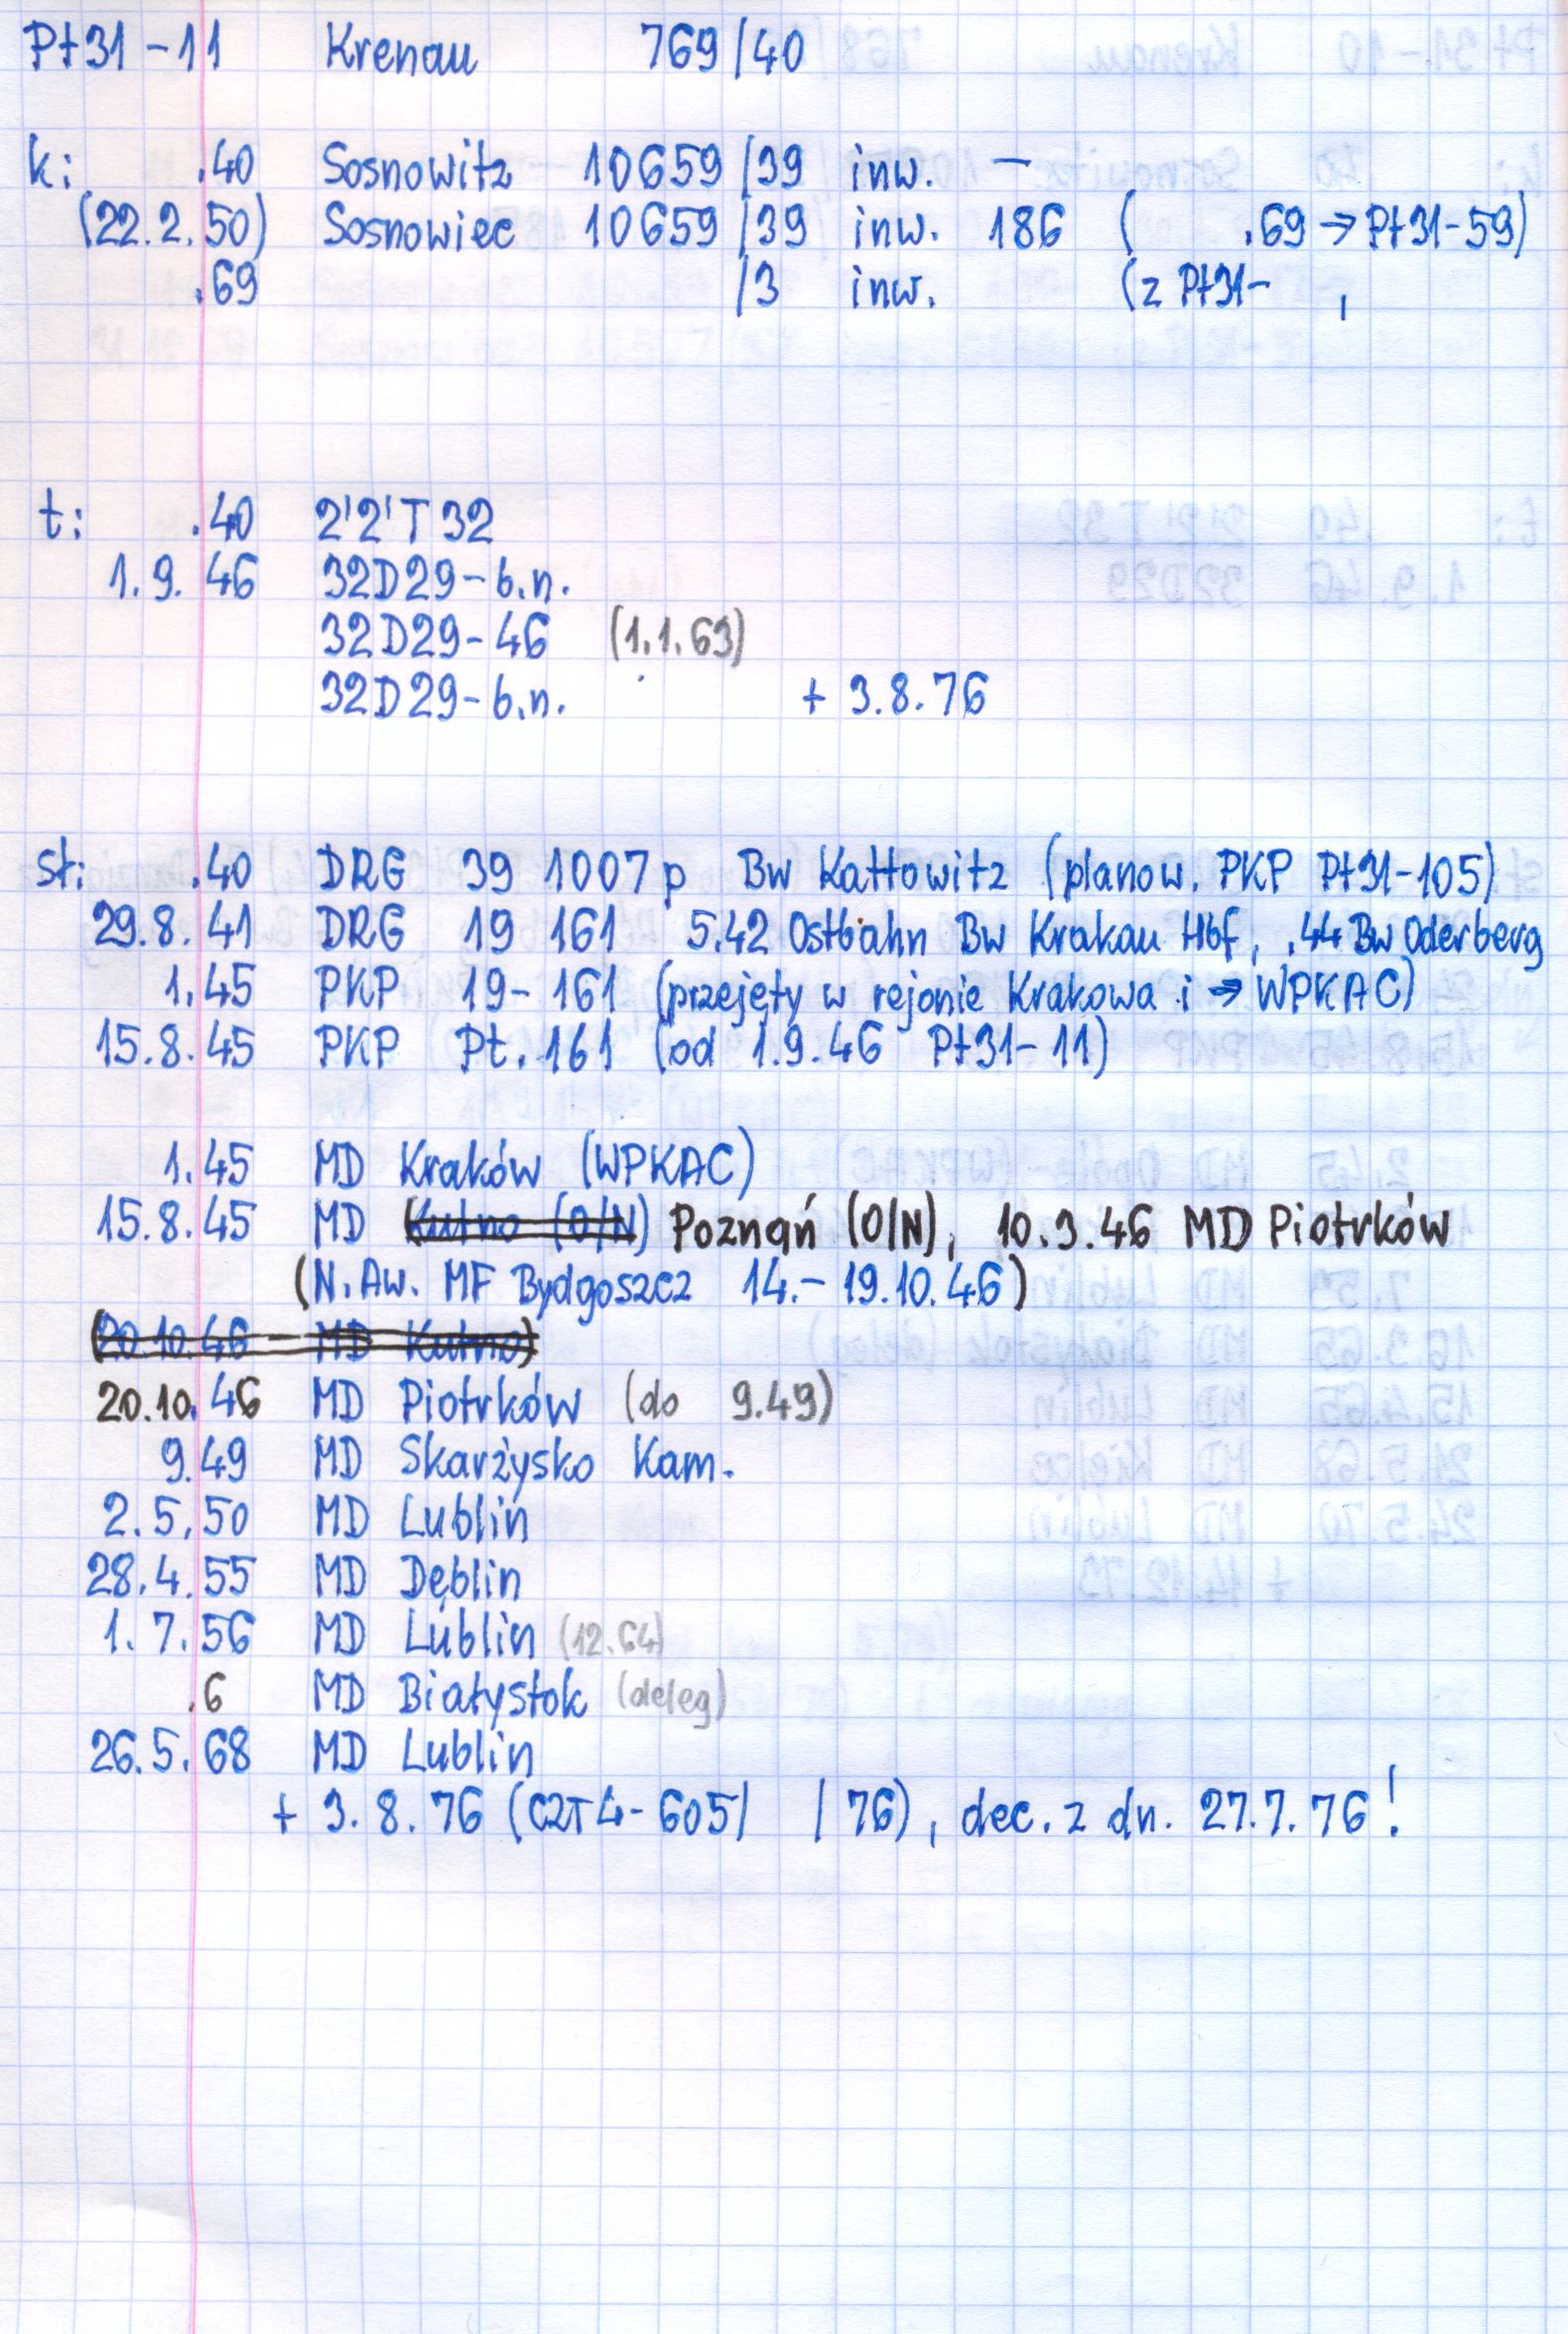 Pt31-11 Krenau 769/40
k: .40 Sosnowitz 10659/39 inw. —
(22.2.50) Sosnowiec 10659/39 inw. 186 ( .69 → Pt31-59)
.69 /3 inw. (z Pt31- ,
t: .40 2'2'T32
1.9.46 32D29-b.n.
32D29-46 (1.1.63)
32D29-b.n. + 3.8.76
st: .40 DRG 39 1007p Bw Kattowitz (planow. PKP Pt31-105)
29.8.41 DRG 19 161 5.42 Ostbahn Bw Krakau Hbf, .44 Bw Oderberg
1.45 PKP 19-161 (przejęty w rejonie Krakowa i → WPKAC)
15.8.45 PKP Pt.161 (od 1.9.46 Pt31-11)
1.45 MD Kraków (WPKAC)
15.8.45 MD Kutno (O/N) Poznań (O/N), 10.3.46 MD Piotrków
(N.Aw. MF Bydgoszcz 14.-19.10.46)
(20.10.46 - MD Kutno)
20.10.46 MD Piotrków (do 9.49)
9.49 MD Skarżysko Kam.
2.5.50 MD Lublin
28.4.55 MD Dęblin
1.7.56 MD Lublin (12.64)
.6 MD Białystok (deleg)
26.5.68 MD Lublin
+ 3.8.76 (CZT4-605/ /76), dec. z dn. 27.7.76!